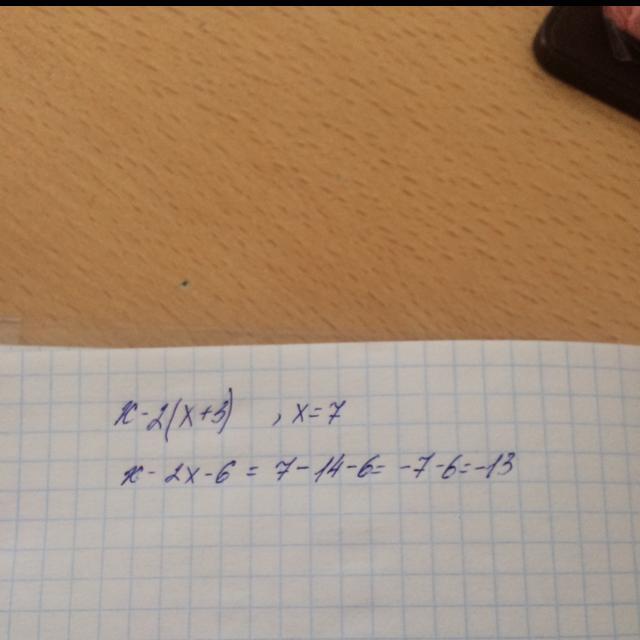 x-2(x+3) , x=7
x-2x-6 = 7-14-6= -7-6=-13